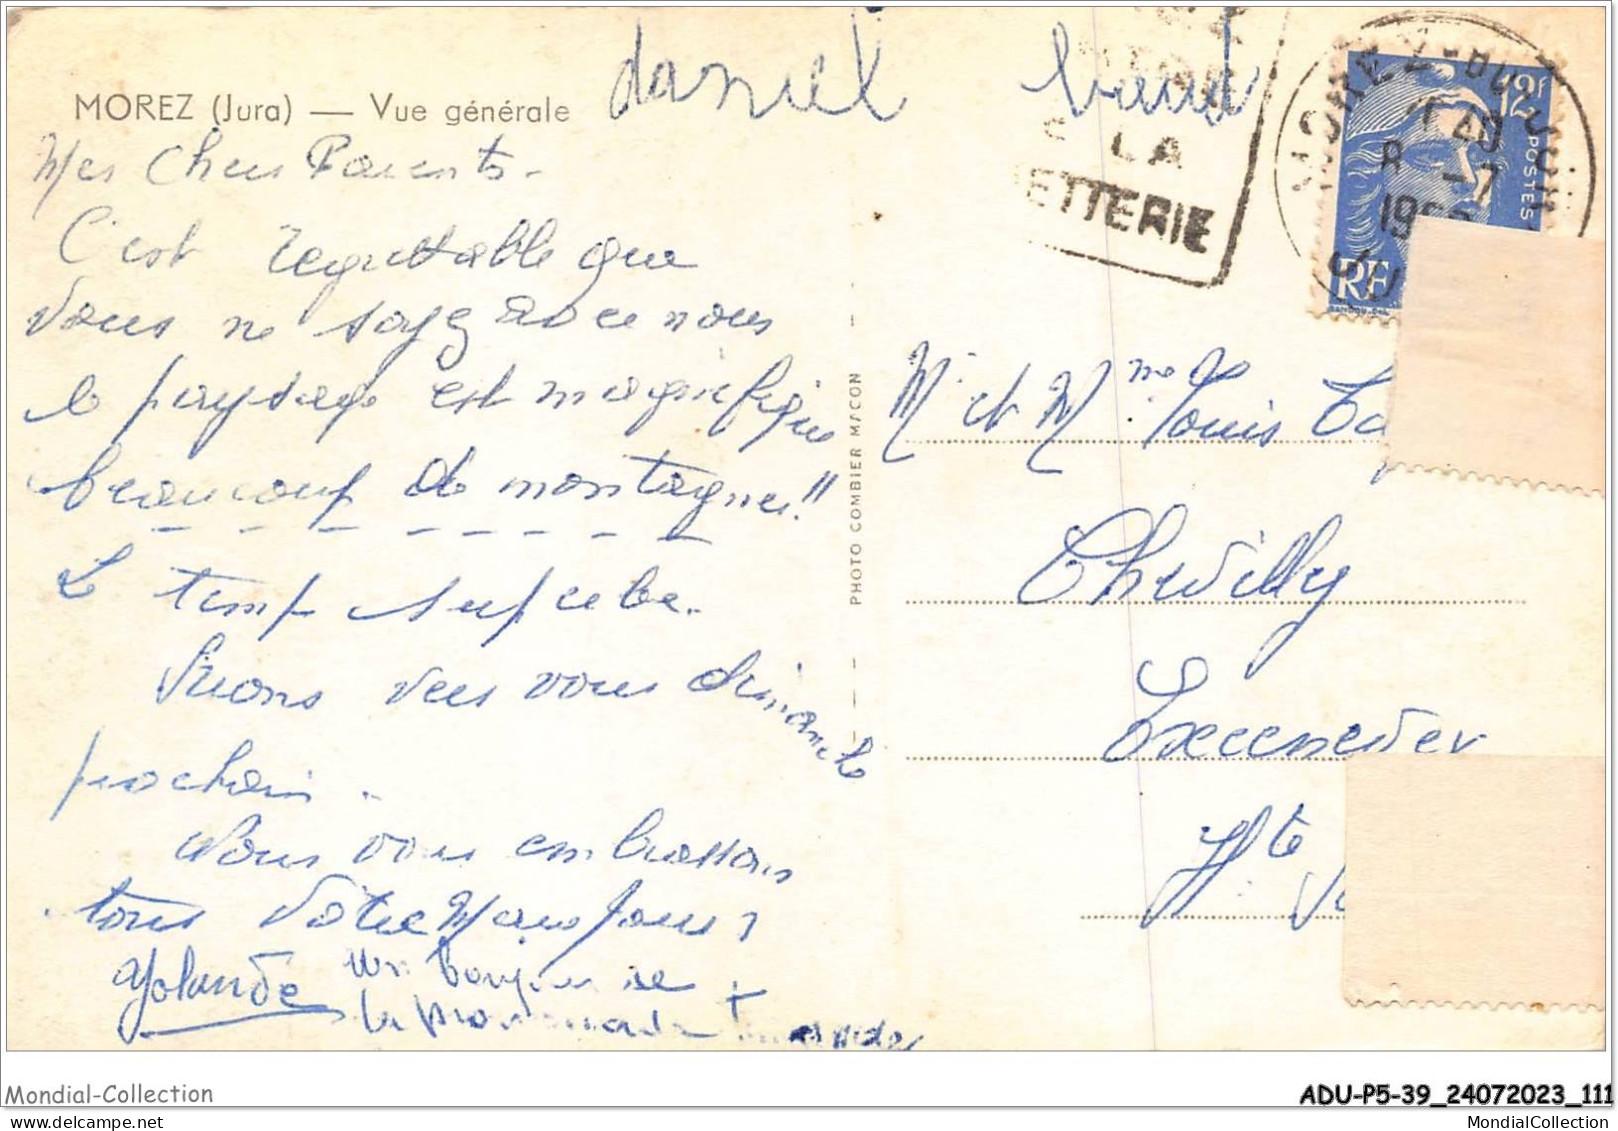 daniel
MOREZ (Jura) — Vue générale
Mes Chers Parents.
C'est regrettable que
vous ne soyez avec nous
le paysage est magnifique
beaucoup de montagnes!!
Le temp superbe.
Irons vers vous dimanche
prochain.
Nous vous embrassons
tous
Yolande Un bonjour de
la promenade
PHOTO COMBIER MACON
LA
ETTERIE
MOREZ-DU
12F
POSTES
RF
8 -7
19
Mr et Mme Louis
Chevilly
Excenevex
Hte
Mondial-Collection
ADU-P5-39_24072023_111
MondialCollection